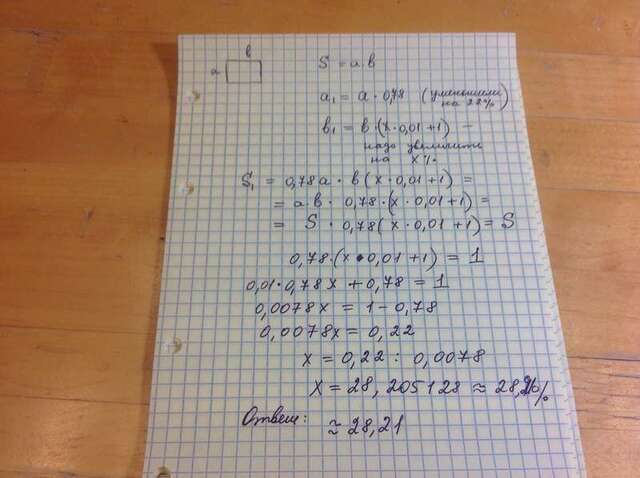 в
а
S = а.в
а₁ = а · 0,78 (уменьшили
на 22%)
в₁ = в · (х · 0,01 + 1) –
надо увеличить
на х%
S₁ = 0,78 а · в (х · 0,01 + 1) =
= а в · 0,78 · (х · 0,01 + 1) =
= S · 0,78 (х · 0,01 + 1) = S
0,78 · (х · 0,01 + 1) = 1
0,01 · 0,78 х + 0,78 = 1
0,0078х = 1 – 0,78
0,0078х = 0,22
х = 0,22 : 0,0078
х = 28,205128 ≈ %
Ответ: ≈ 28,21